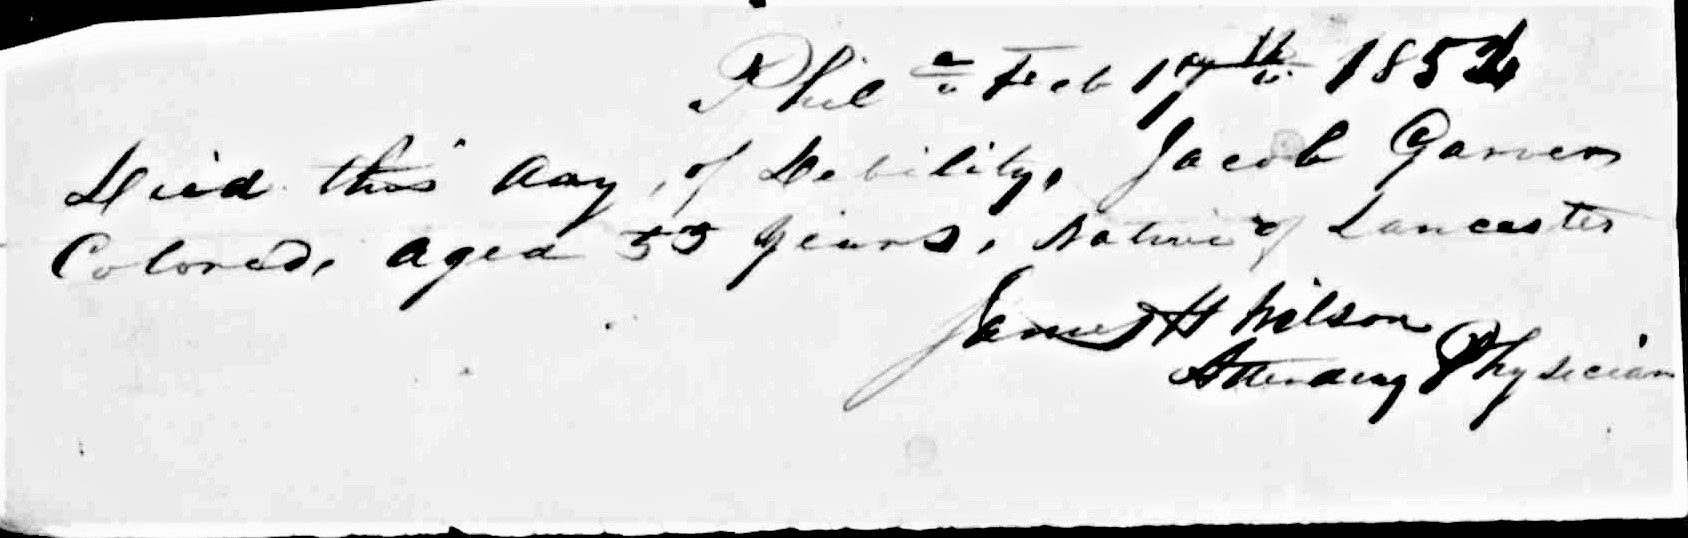 Phil<sup>a</sup> Feb 17th 1854
Died this day, of Debility, Jacob
Colored, aged 55 years, Native of Lancaster
James H Wilson
Attending Physician